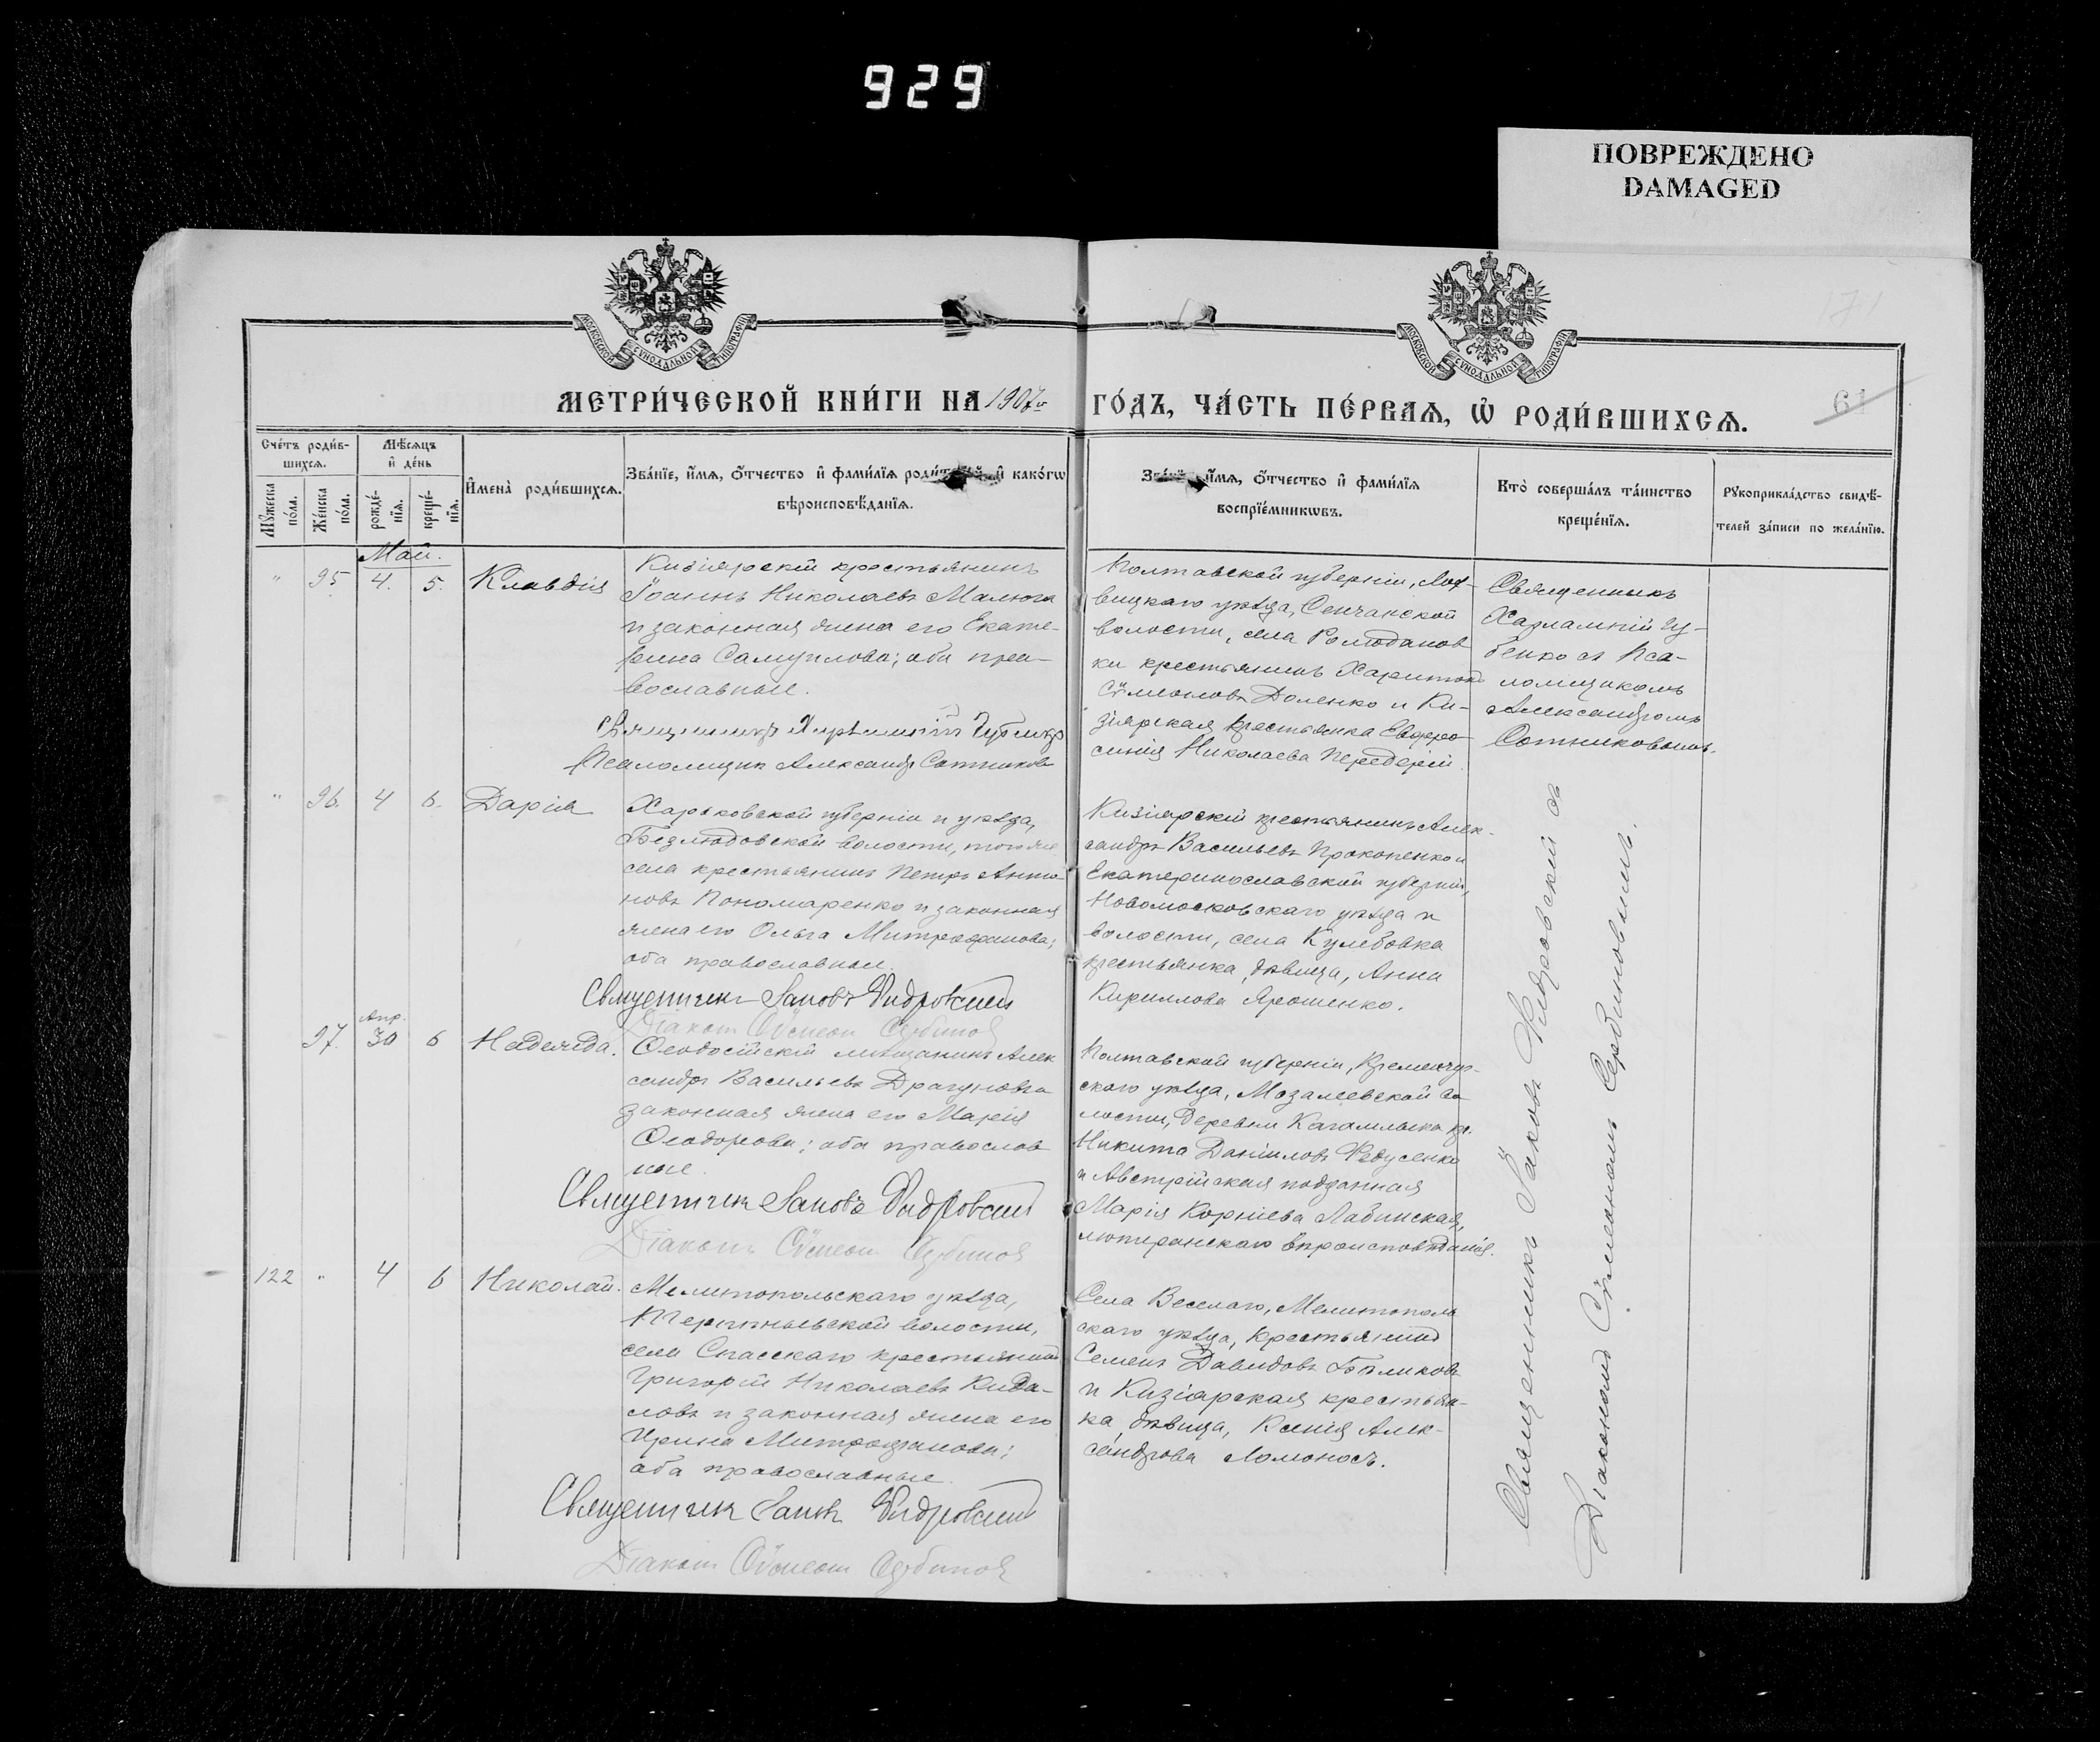 929
ПОВРЕЖДЕНО
DAMAGED
МОСКОВСКОЙ СУНОДАЛЬНОЙ ТИПОГРАФІИ
МОСКОВСКОЙ СУНОДАЛЬНОЙ ТИПОГРАФІИ
17
61
МЕТРИ́ЧЕСКОЙ КНИ́ГИ НА 1907й ГО́ДЪ, ЧА́СТЬ ПЕ́РВАѦ, Ѡ РОДИ́ВШИХСѦ.
Сче́тъ роди́в-
шихсѧ.
Мꙋ́жеска
по́ла.
Же́нска
по́ла.
Мѣ́сѧцъ
и де́нь
рожде́-
нїѧ.
креще́-
нїѧ.
И҆мена̀ роди́вшихсѧ.
Зва́нїе, и҆́мѧ, ѻ҆́тчество и҆ фами́лїѧ роди́телей и҆ како́гѡ
вѣроисповѣ́данїѧ.
Зва́нїе, и҆́мѧ, ѻ҆́тчество и҆ фами́лїѧ
воспрїе́мникѡвъ.
Кто̀ соверша́лъ та́инство
креще́нїѧ.
Рꙋкоприкла́дство свидѣ́-
телей за́писи по жела́нїю.
Май.
" 95. 4. 5. Клавдія
Кизіярскій крестьянинъ
Іоаннъ Николаевъ Малюга
и законная жена его Екате-
рина Самуилова; оба пра-
вославные.
Священникъ Харлампій Губенко
Псаломщик Александр Сотников
Полтавской губерніи, Лох-
вицкаго уѣзда, Сенчанской
волости, села Ромодановки
ки крестьянинъ Харитонъ
Сѵмеоновъ Доленко и Ки-
зіярская крестьянка Евфро-
синія Николаева Передерій.
Священникъ
Харлампій Гу-
бенко съ Пса-
ломщикомъ
Александромъ
Сотниковымъ.
" 96. 4 6. Дарія
Харьковской губерніи и уѣзда,
Безлюдовской волости, того же
села крестьянинъ Петръ Анто-
новъ Пономаренко и законная
жена его Ольга Митрофанова;
оба православные.
Священник Іаковъ Фидровскій
Діакон Сѵмеон Сербинов
Кизіярскій крестьянинъ Алек-
сандръ Васильевъ Прокопенко и
Екатеринославской губерніи,
Новомосковскаго уѣзда и
волости, села Кулебовка
крестьянка, дѣвица, Анна
Кириллова Ярошенко.
97. Апр. 30 6 Надежда.
Ѳеодосійскій мѣщанинъ Алек
сандръ Васильевъ Драгуновъ и
законная жена его Марія
Ѳеодорова; оба православ
ные.
Священник Іаковъ Фидровскій
Діаконъ Сѵмеон Сербинов
Полтавской губерніи, Кременчуг-
скаго уѣзда, Мозалеевской во
лости, деревни Кагамлыка кр.
Никита Даніиловъ Федусенко
и Австрійская подданная
Марія Корніева Лабинская,
лютеранскаго вѣроисповѣданія.
122 " 4 6 Николай.
Мелитопольскаго уѣзда,
Терпѣньевской волости,
села Спасскаго крестьянинъ
Григорій Николаевъ Кида-
ловъ и законная жена его
Ирина Митрофанова;
оба православные.
Священник Іаков Фидровскій
Діакон Сѵмеон Сербинов
Села Веселаго, Мелитополь
скаго уѣзда, крестьянинъ
Семенъ Давидовъ Бѣликовъ
и Кизіярская крестьян-
ка, дѣвица, Ксенія Алек-
сандрова Ломоносъ.
Священникъ Іаковъ Фидровскій съ
Діакономъ Сѵмеономъ Сербиновымъ.